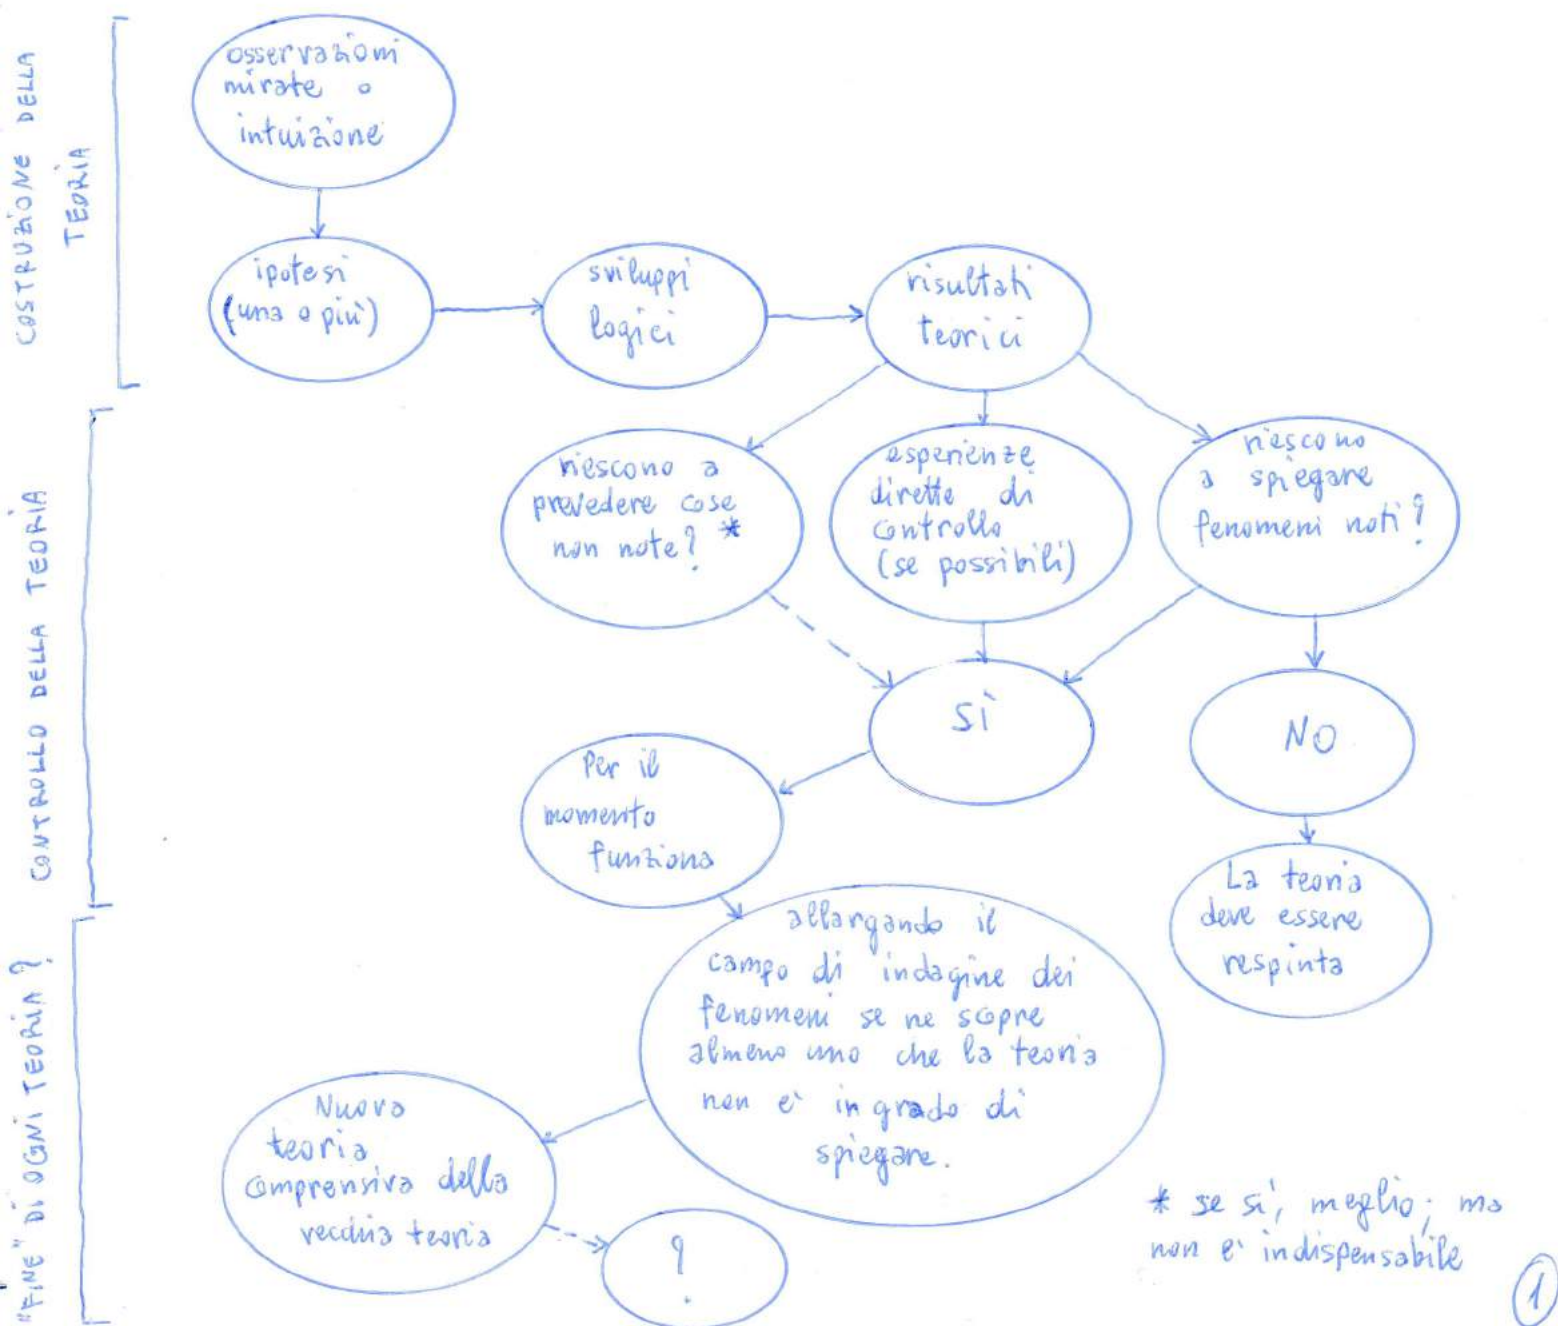 COSTRUZIONE DELLA
TEORIA
osservazioni
mirate o
intuizione
ipotesi
(una o più)
sviluppi
logici
risultati
teorici
CONTROLLO DELLA TEORIA
riescono a
prevedere cose
non note? *
esperienze
dirette di
controllo
(se possibili)
riescono
a spiegare
fenomeni noti?
SÌ
NO
Per il
momento
funziona
La teoria
deve essere
respinta
"FINE" DI OGNI TEORIA?
allargando il
campo di indagine dei
fenomeni se ne scopre
almeno uno che la teoria
non è in grado di
spiegare.
Nuova
teoria
comprensiva della
vecchia teoria
?
* se sì, meglio; ma
non è indispensabile
1